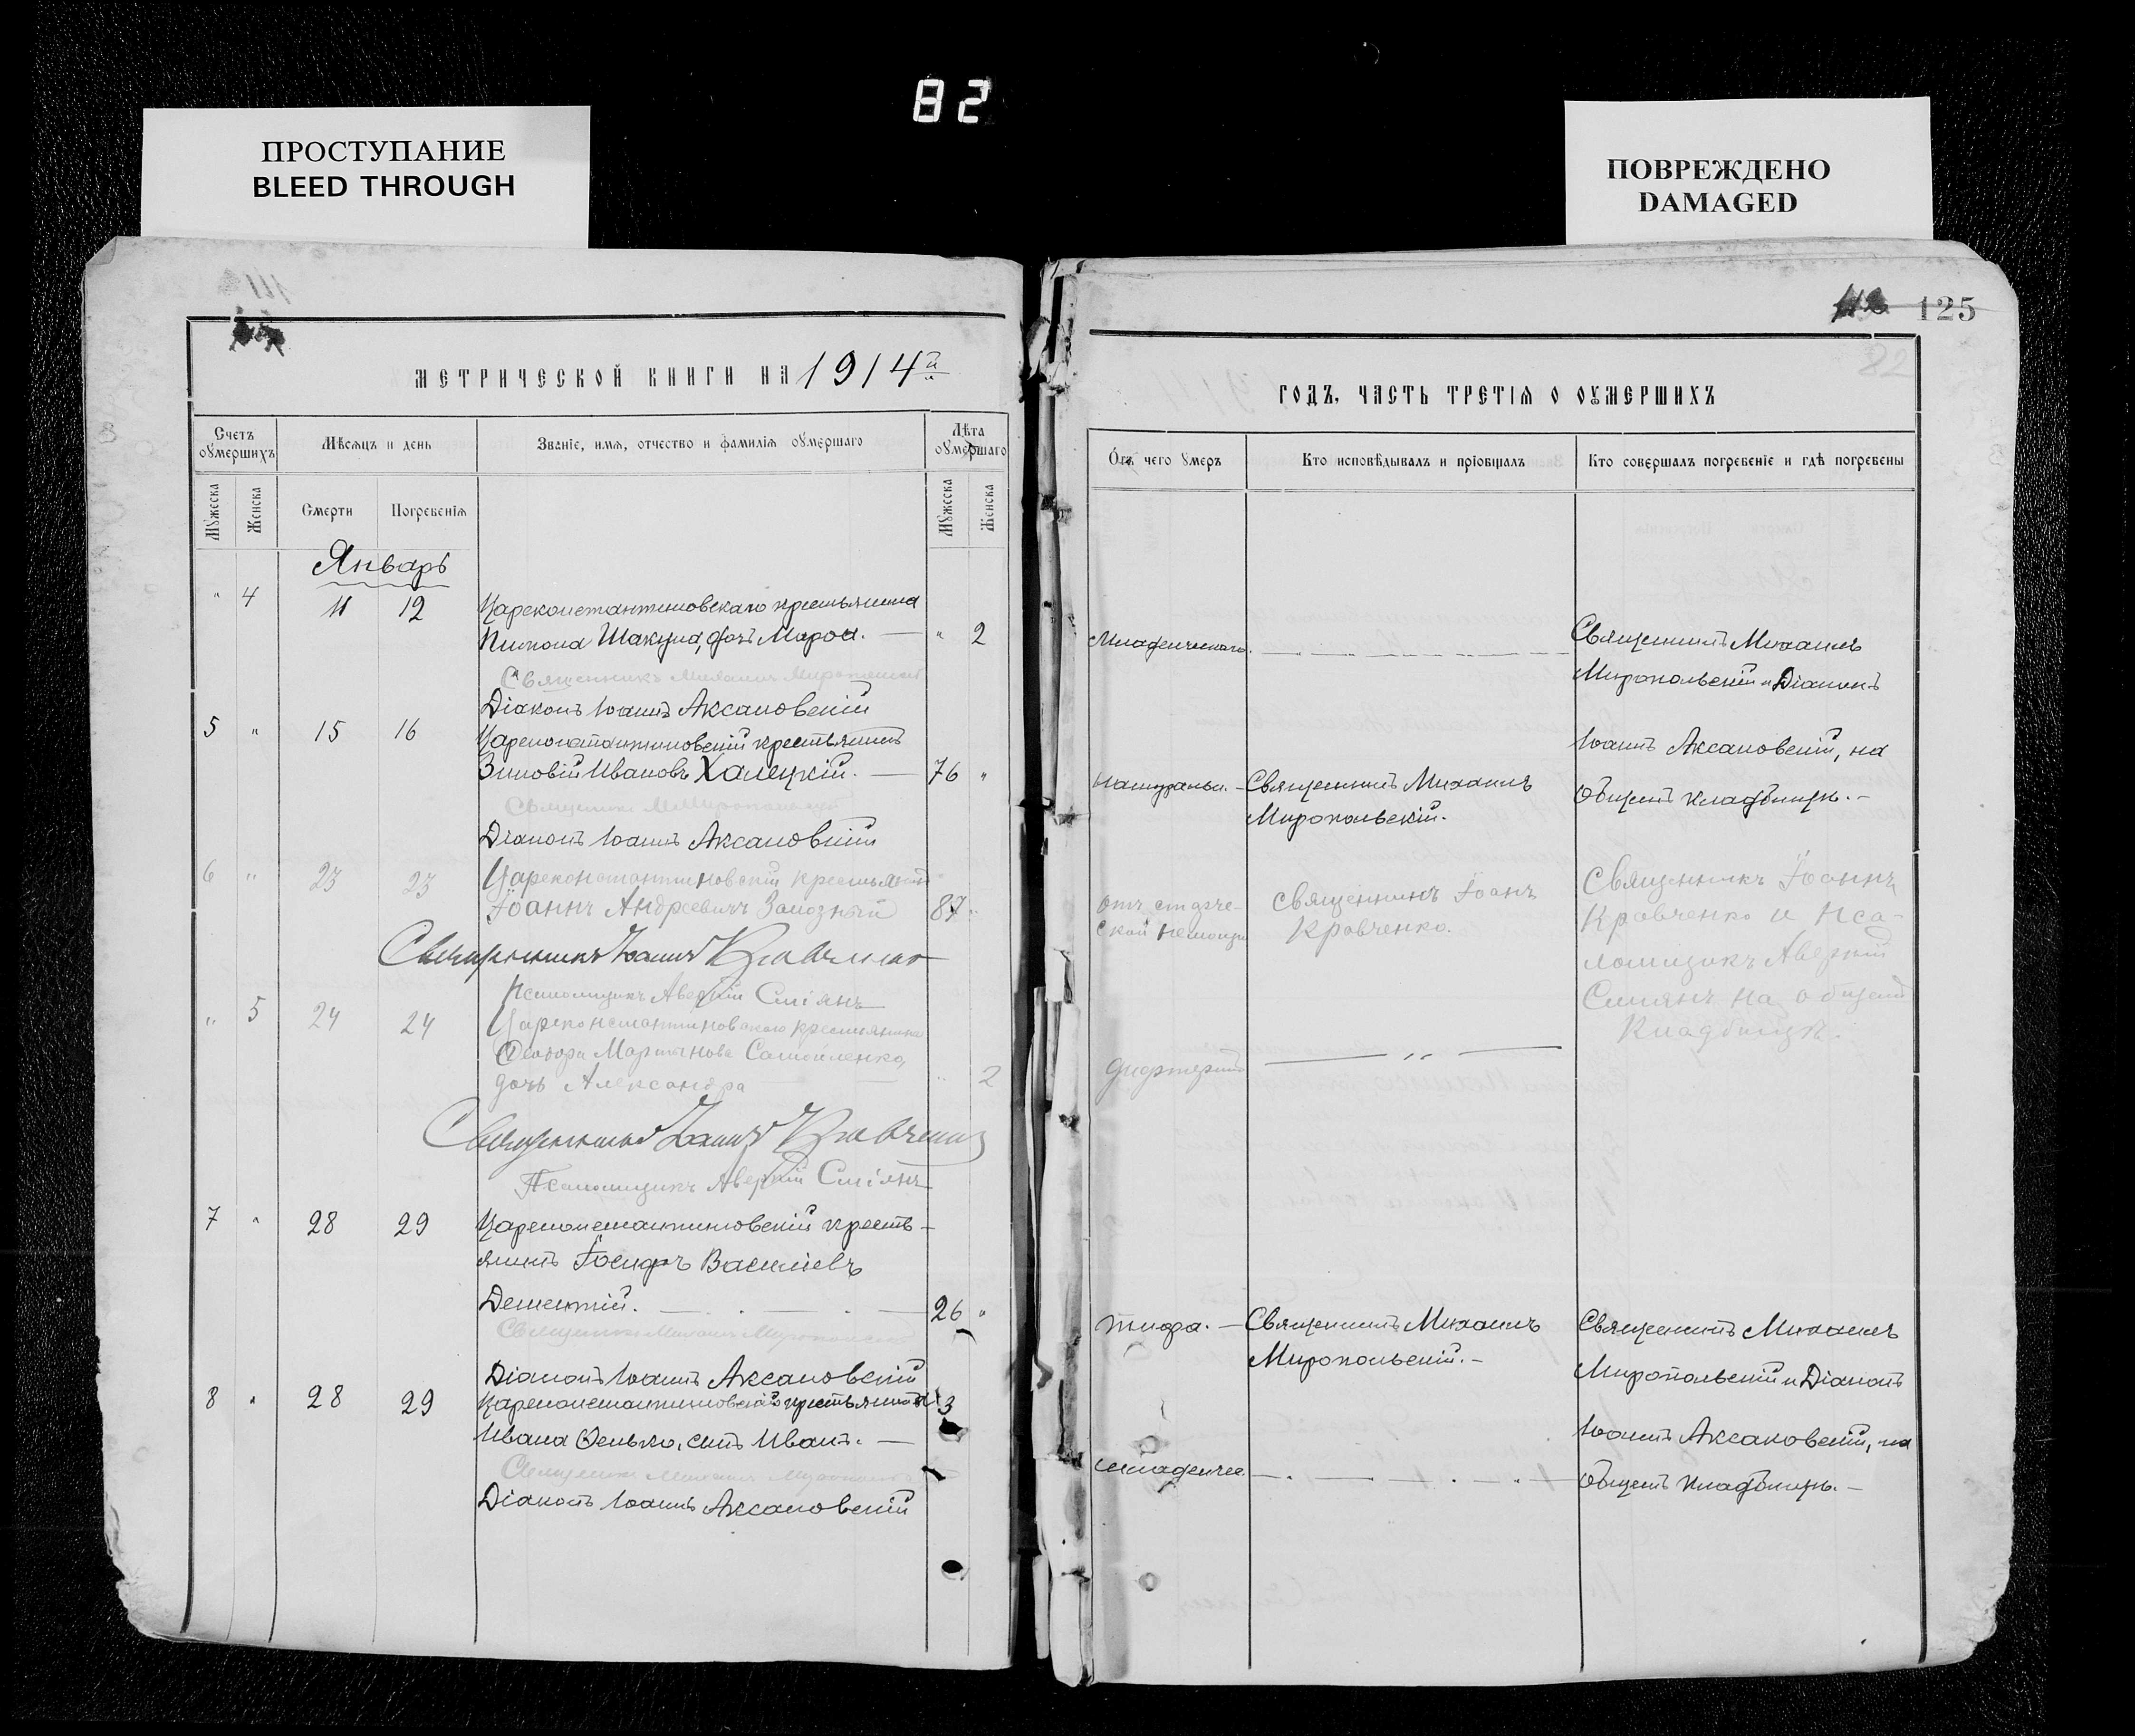 82
ПРОСТУПАНИЕ
BLEED THROUGH
ПОВРЕЖДЕНО
DAMAGED
125
МЕТРИЧЕСКОЙ КНИГИ НА 1914й
ГОДЪ, ЧАСТЬ ТРЕТІЯ О ОУМЕРШИХЪ
Счетъ оумершихъ
Мѣсяцъ и день
Званіе, имя, отчество и фамилія оумершаго
Лѣта оумершаго
Мужеска
Женска
Смерти
Погребенія
Мужеска
Женска
Отъ чего умеръ
Кто исповѣдывалъ и пріобщалъ
Кто совершалъ погребеніе и гдѣ погребены
Январь
" 4 11 12 Цареконстантиновскаго крестьянина
Пимона Шакула, дочь Мароа. — " 2
Младенческаго.
Священникъ Михаилъ
Миропольскій и Діаконъ
Іоаннъ Аксановскій, на
общемъ кладбищѣ. –
Священникъ Михаилъ Миропольскій
Діаконъ Іоаннъ Аксановскій
5 " 15 16 Цареконстантиновскій крестьянинъ
Зиновій Ивановъ Халецкій. — 76 "
Натуральн. – Священникъ Михаилъ
Миропольскій.
Священникъ М Миропольскій
Діаконъ Іоаннъ Аксановскій
6 " 23 23 Цареконстантиновскій крестьянинъ
Іоаннъ Андреевичъ Залозный 87 "
отъ старче-
ской немощи
священникъ Іоанъ
Кравченко.
Священникъ Іоаннъ
Кравченко и пса-
ломщикъ Аверкій
Сміянъ на общемъ
Кладбищѣ.
Священникъ Іоаннъ Кравченко
Псаломщикъ Аверкій Сміянъ
" 5 24 24 Цареконстантиновскаго крестьянина
Ѳеодора Мартынова Самойленко,
дочь Александра — " 2
дифтеритъ
Священникъ Іоаннъ Кравченко
Псаломщикъ Аверкій Сміянъ
7 " 28 29 Цареконстантиновскій кресть-
янинъ Іосифъ Васильевъ
Дементій. — 26 "
тифа. – Священникъ Михаилъ
Миропольскій. –
Священникъ Михаилъ
Миропольскій и Діаконъ
Іоаннъ Аксановскій, на
общемъ кладбищѣ. –
Священникъ Михаилъ Миропольскій
Діаконъ Іоаннъ Аксановскій
8 " 28 29 Цареконстантиновскаго крестьянина
Ивана Фенько, сынъ Иванъ. —
младенчес.
Священникъ Михаилъ Миропольскій
Діаконъ Іоаннъ Аксановскій